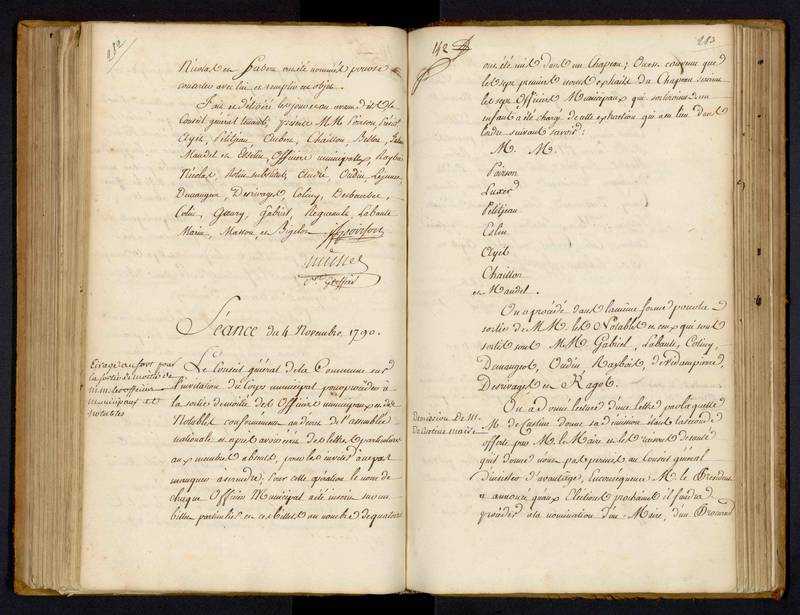 282
Nicolas et Fabvre ont été nommés
concerter avec lui et remplir cet objet.
Fait et délibéré les jour et an avant dits le
Conseil général tenant, présens M.M. Poirson,
Ayet, Petitjean, Aubry, Chaillon, Bellot,
Mandel et Esslin, Officiers municipaux,
Nicolas, Notin substitut, André, Oudin, Lejeune,
Demangeot, Desrivages, Coliny, Desbourbes,
Colin, Goeury, Gabriel, Regneault, Labante
Marin, Masson, et Bigelot.
Séance du 4 Novembre 1790.
Tirage au sort pour
la sortie de moitié de
M.M. les officiers
municipaux et
notables
Le Conseil général de la Commune sur
l'invitation du Corps municipal pour procéder à
la sortie de moitié des Officiers municipaux et des
Notables conformément au décret de l'assemblée
nationale et après avoir écrit des lettres particulières
aux membres absents, pour les inviter à ne pas
manquer à se rendre; Pour cette opération le nom de
chaque Officier Municipal a été inscrit sur un
billet particulier et ces billets au nombre de quatorze
142
283
ont été mis dans un Chapeau; On est convenu que
les sept premiers noms extraits du Chapeau seroient
les sept Officiers Municipaux qui sortiroient; un
enfant a été chargé de cette extraction qui a eu lieu dans
l'ordre suivant savoir:
M. M.
Poirson
Luxer
Petitjean
Eslin
Ayet
Chaillon
et Mandel.
On a procédé dans la même forme pour la
sortie de M.M. les Notables et ceux qui sont
sortis sont M.M. Gabriel, Labante, Coliny,
Demangeot, Oudin, Raybois, de Vidampierre,
Desrivages et Ragot.
Demission de M.
De Custine maire
On a donné lecture d'une lettre par laquelle
M. de Custine donne sa démission étant la seconde
offerte par M. le Maire et les raisons
qu'il donne n'ont pas permis au Conseil général
d'insister d'avantage, En conséquence M. le Président
a annoncé qu'aux Elections prochaines il faudra
procéder à la nomination d'un Maire, d'un Procureur